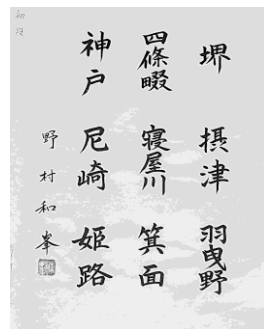 堺 摂津 羽曳野
四條畷 寝屋川 箕面
神戸 尼崎 姫路
野村和峯